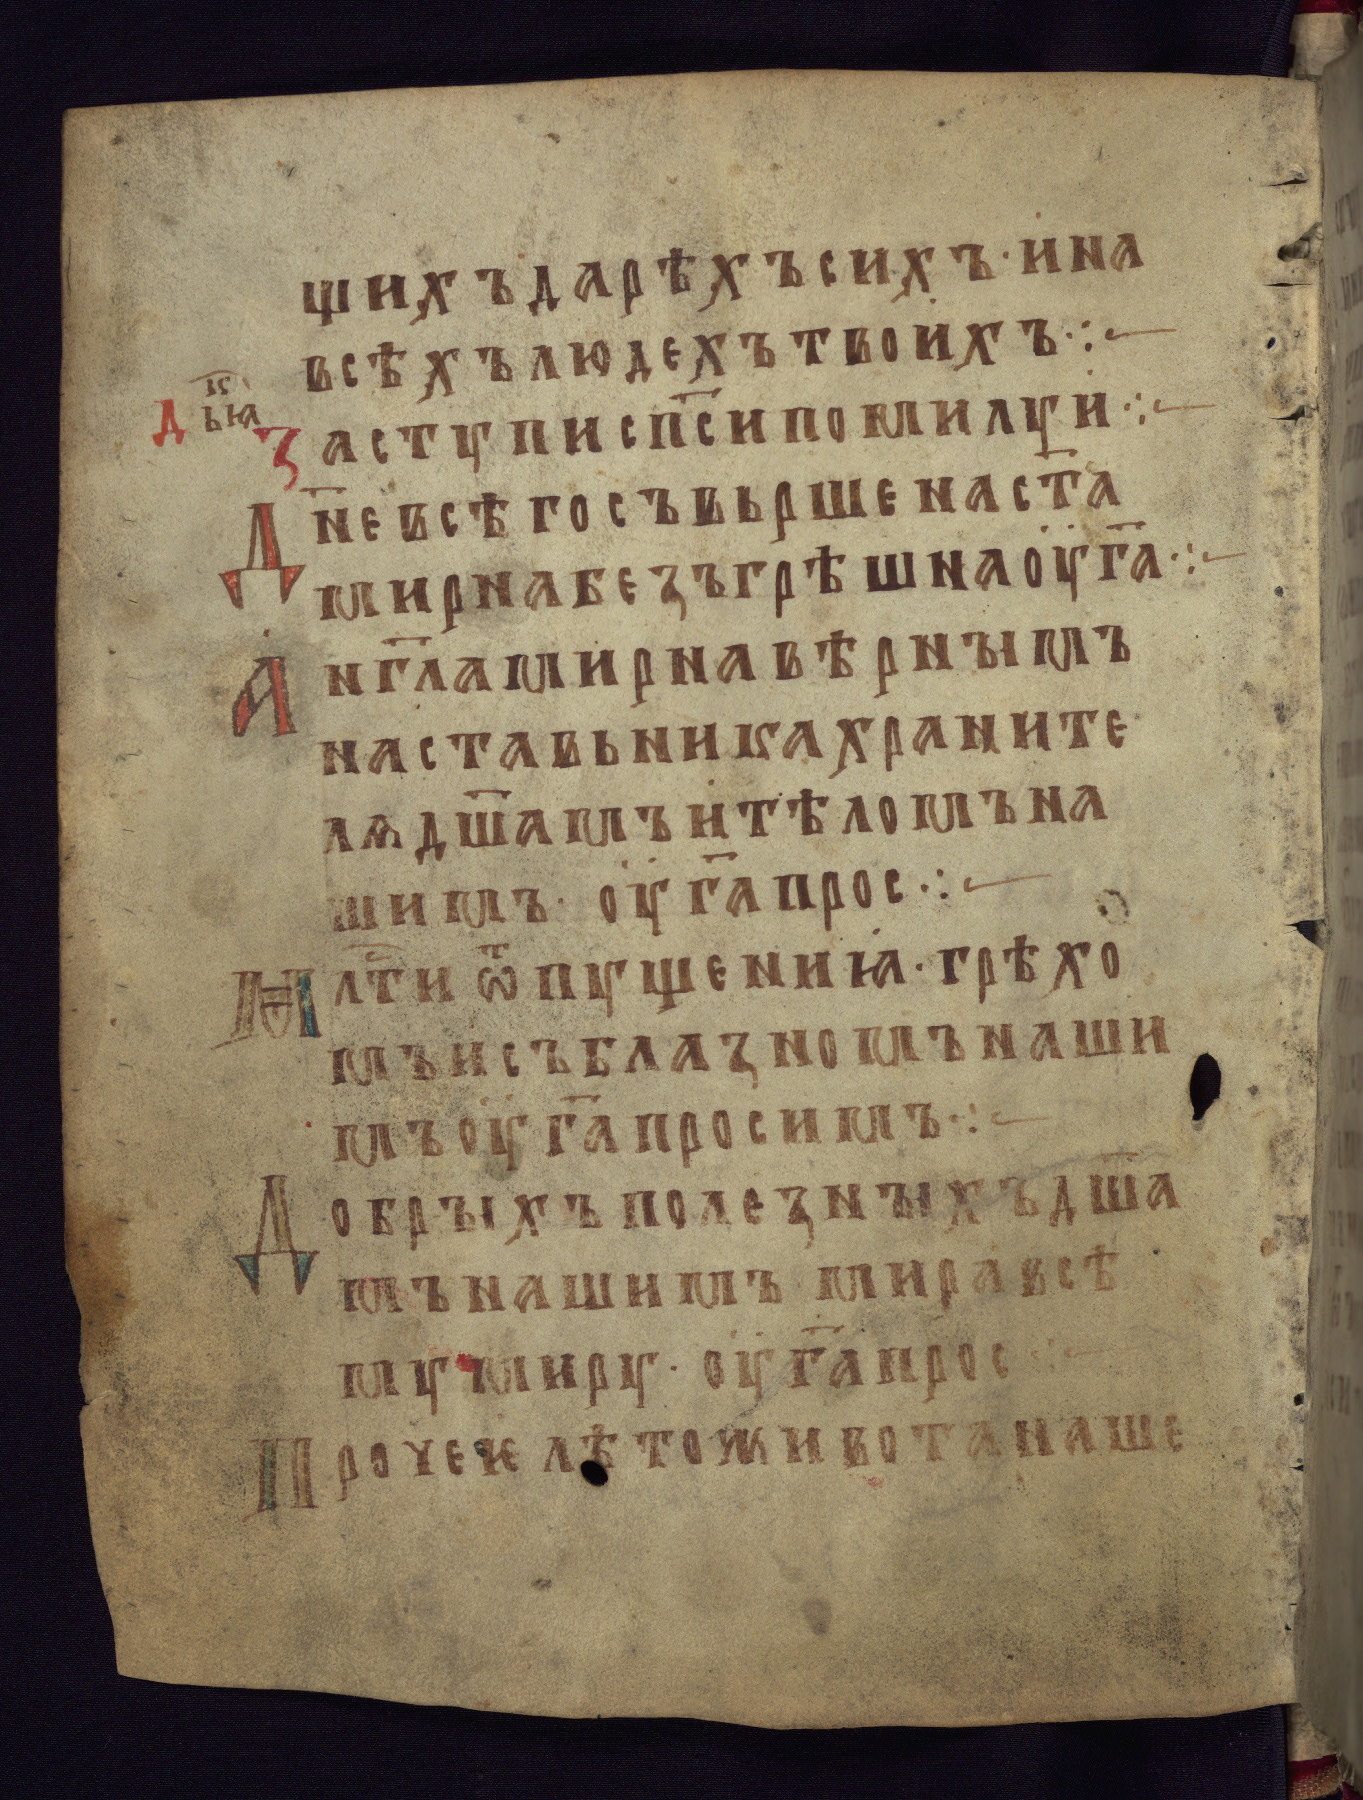 щихъдарѣхъсихъ·ина
всѣхълюдехътвоихъ·:
дьꙗк҃
Заступиспс҃ипомилуи·:
Дн҃евсѣгосъвьршенаст҃а
мирнабезъгрѣшнаоуг҃а·:
Анг҃ламирнавѣрнꙑмъ
наставьникахраните
лѧдш҃амъитѣломъна
шимъ·оуг҃апрос·:
Млт҃иѿпущениꙗ·грѣхо
мъисъблазномънаши
мъоуг҃апросимъ·:
Добрꙑхъполезнꙑхъдш҃а
мънашимъмиравсѣ
мумиру·оуг҃апрос
Прочеѥлѣтоживотанаше